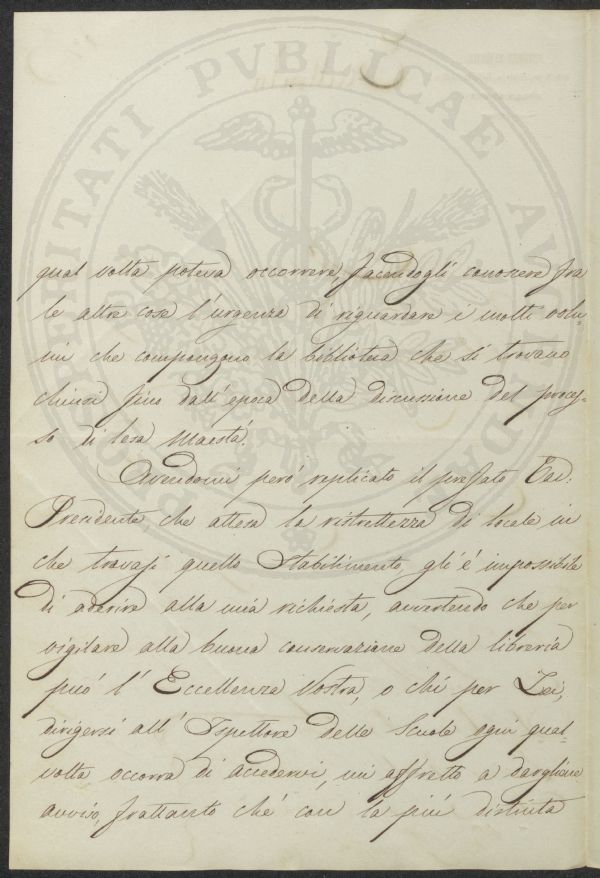 qual volta poteva occorrere, facendogli conoscere fra
le altre cose l'urgenza di riguardare i molti volu-
mi che compongono la biblioteca che si trovano
chiusi fino dall'epoca della discussione del proces-
so di lesa Maestà.
Avendomi però replicato il prefato Cav:
Presidente che attesa la ristrettezza di locale in
che travasi quello Stabilimento, gli è impossibile
di aderire alla mia richiesta, avvertendo che per
vigilare alla buona conservazione della libreria
può l'Eccellenza Vostra, o chi per Lei,
dirigersi all'Ispettore delle Scuole ogni qual-
volta occorra di accedervi, mi affretto a dargliene
avviso, frattanto che con la più distinta
PVBLICAE